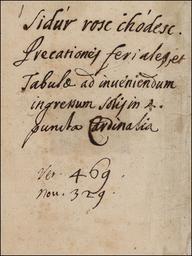 Sidúr rosc chódesc.
Precationes feriales, et
Tabulæ ad inveniendum
ingressum Solis in 4.
puncta Cardinalia
Ver. 469.
Nov. 329.